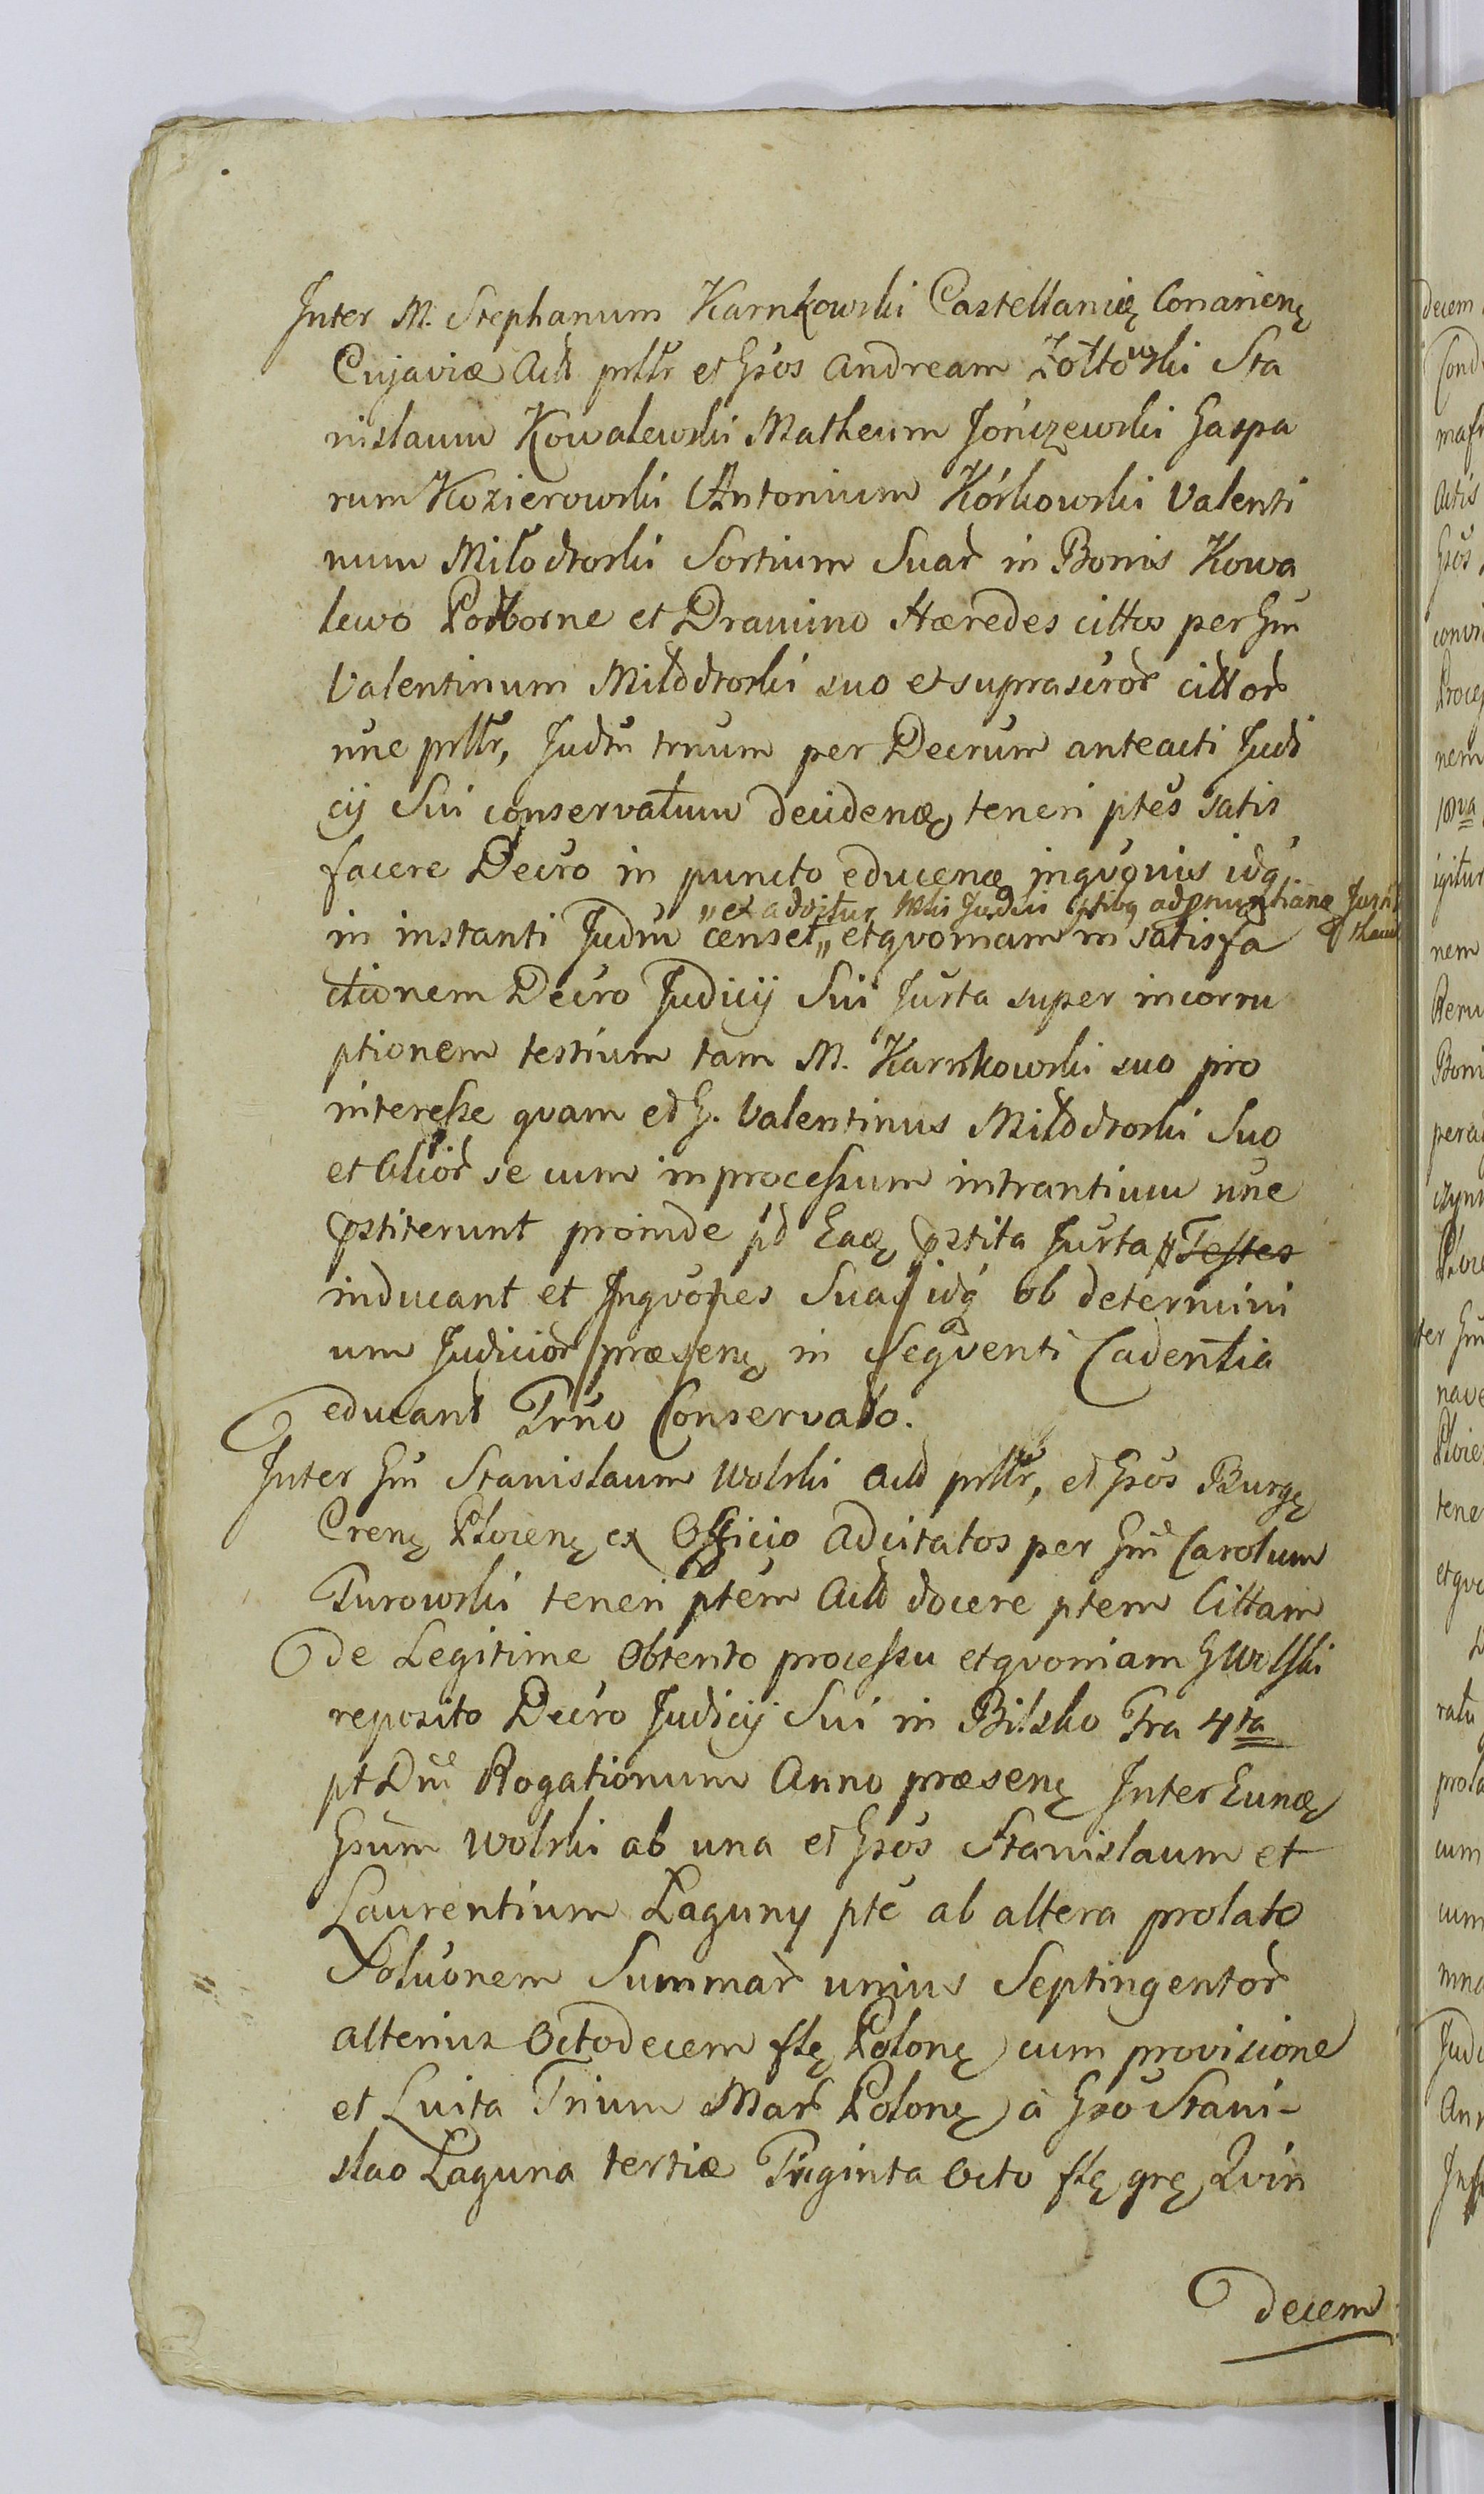 Inter M. Stephanum Karnkowski Castellanię Conarienę
Cujaviæ Actt prllr et Gsos Andream Zołtowski Sta
nislaum Kowalewski Matheum Jończewski Gaspa
rum Kozierowski Antonium Kórkowski Valenti
num Miłodroski Sortium Suar in Bonis Kowa
lewo Podborne et Dramino Hæredes cittos per Gm
Valentinum Miłodroski suo et suprascror cittor
nne prllr, Judm trnum per Decrum anteacti Judi
cij Sui conservatum decidenæ, teneri ptes satis
facere Decro in puncto educenæ ingvonis idq
„et adjtur Jurta
in instanti Judm censet„ etqvoniam in satisfa
ctionem Decro Judicij Sui Jurta super incorru
ptionem testium tam M. Karnkowski suo pro
interesse qvam et G. Valentinus Miłodroski Suo
et Alior se cum in processum intrantium nne
pstiterunt proinde pd Eaæ pstita Jurta Testes
inducant et Ingvones Suas idq ob determini
um Judicior præsenę in Seqventi Cadentia
educant Trno Conservato.
Inter Gm Stanislaum Wolski Actt prllr, et Gsos Burgę
Crenę Plocenę ex Officio Adcitatos per Gm Carolum
Turowski teneri ptem Actt docere ptem Cittam
De Legitime Obtento processu etqvoniam G Wolski
reposito Decro Judicij Sui in Bilsko Fra 4ta
pt Dm Rogationum Anno præsenę Inter Eunæ
Gsum Wolski ab una et Gsos Stanislaum et
Laurentium Laguny pte ab altera prolato
Soluonem Summar unius Septingentor
alterius Octodecem flę Polonę cum provisione
et Luita Trium Mar Polonę à Gso Stani-
slao Laguna tertiæ Triginta Octo flę grę Qvin
Decem